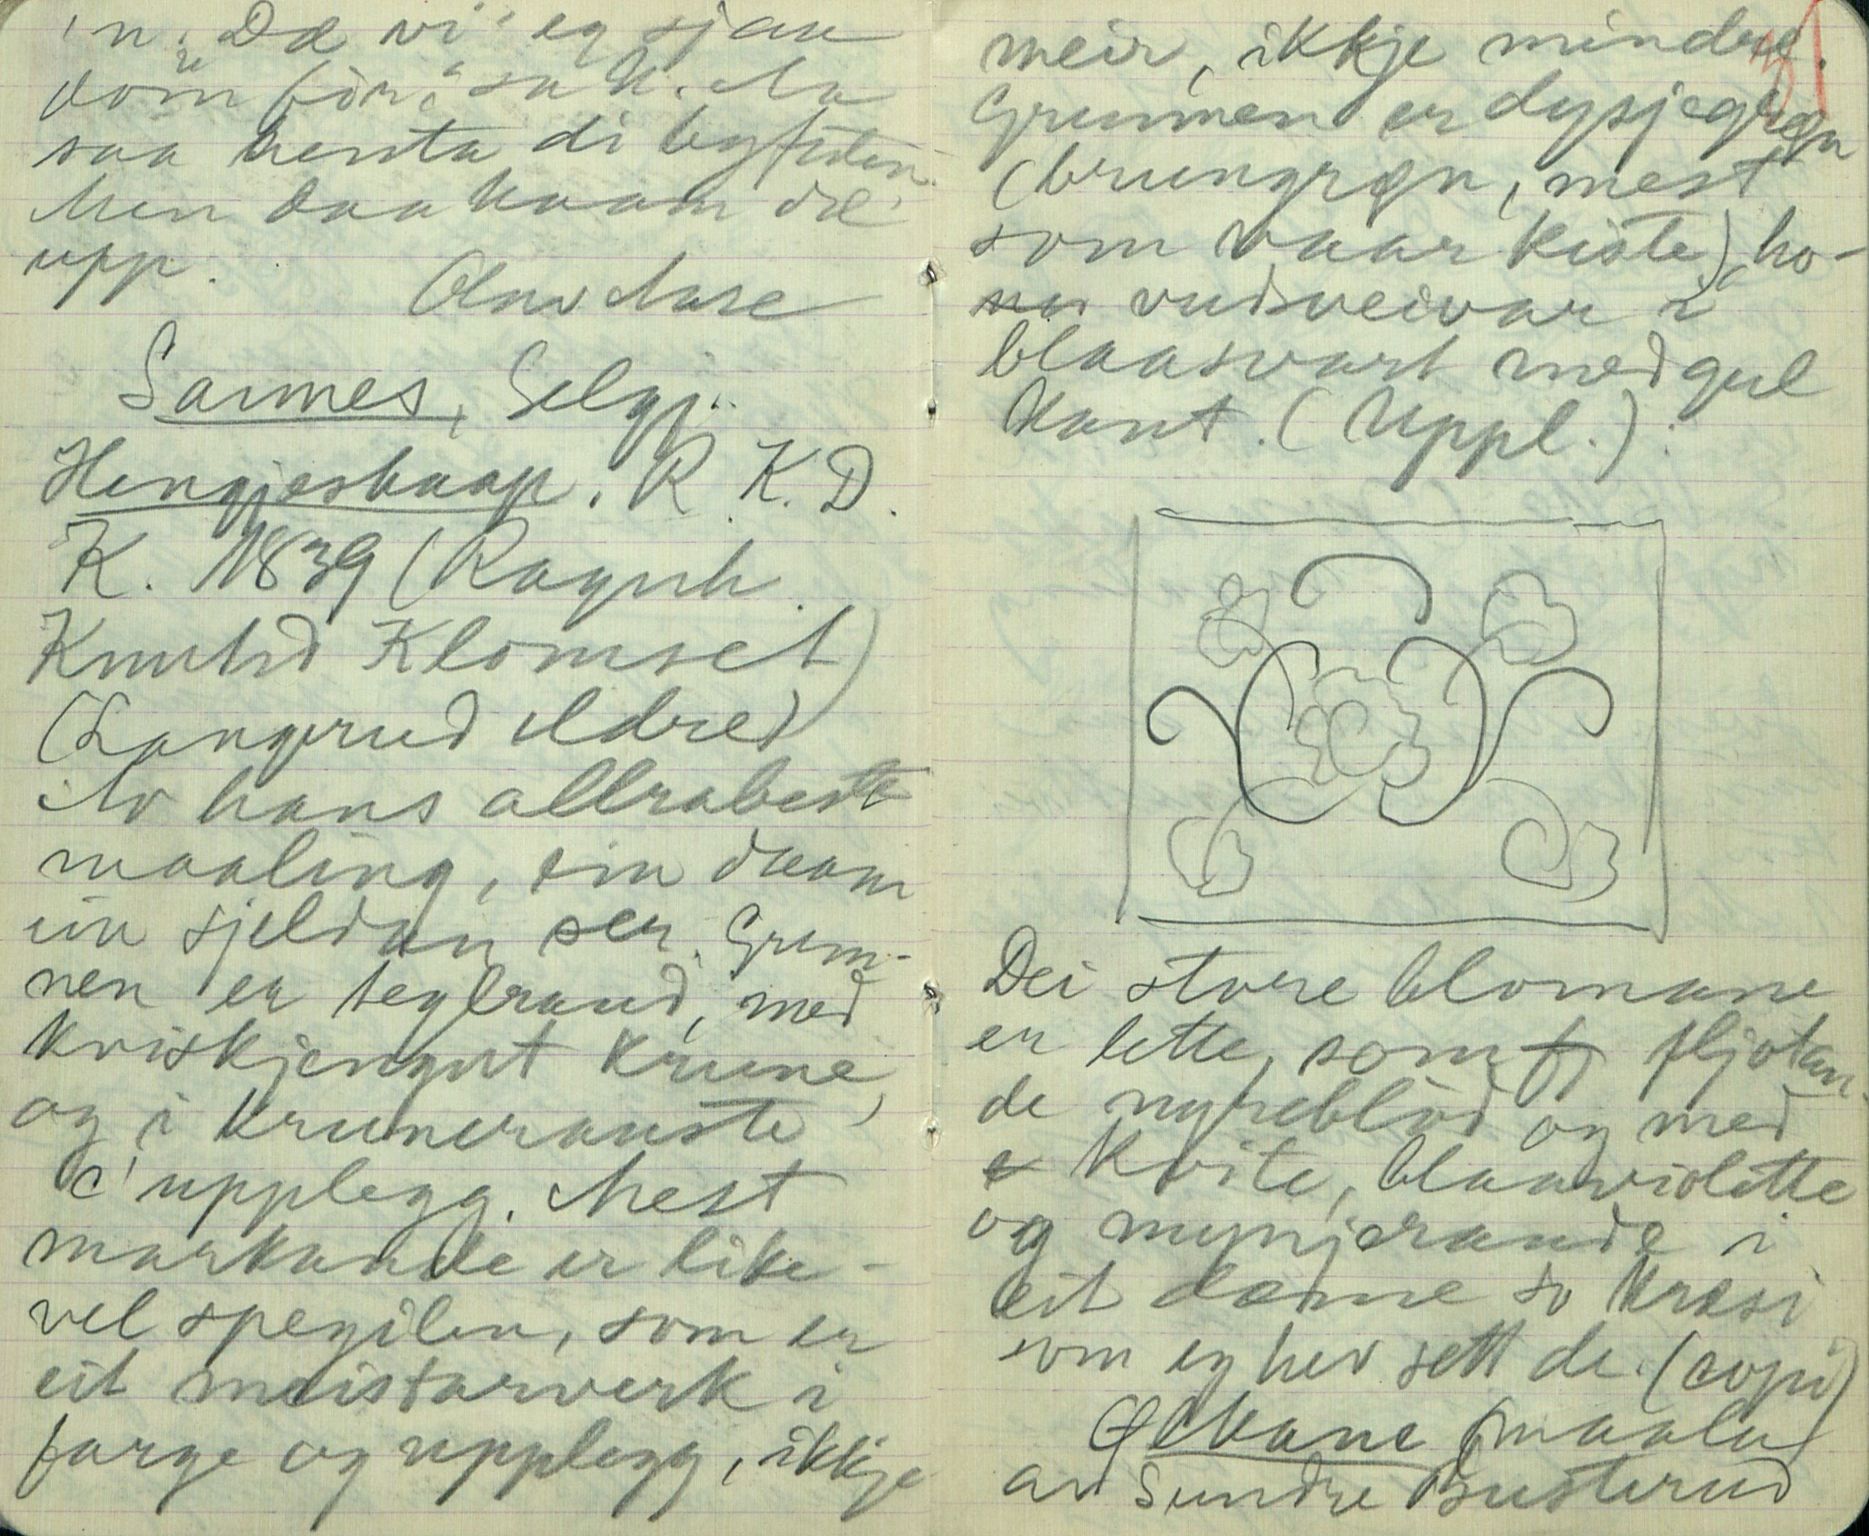 in. Dæ vi eg sjaa
dom før," sa h. Aa
saa henta di lygtidn.
Men daa kaam dæ
upp.
Olav Aase
Sannes, Selgj.
Hengjeskaap. R. K. D.
K. 1839 (Ragnh.
Knutsd Klomset)
(Langerud eldre)
Av hans allrabeste
maaling, ein daam
ein sjeldan ser. Grun-
nen er teglraud, med
kviskjengut krune
og i kruneranste
i upplegg. Mest
markande er like-
vel spegilen, som er
eit meistarverk i
farge og upplegg, ikkje
meir, ikkje mindre.
Grunnen er dysjegrøn
(brungrøn, mest
som vaar kiste), ho-
vudsveivar i
blaasvart med gul
kant. (Uppl.):
Dei store blomane
er lette, som fljotan-
de nyreblod og med
kvite, blaaviolette
og mynjeraude i
eit dæme so kræsi
som eg hev sett de. (copi)
Ølkane (maala)
av Sundre Busterud